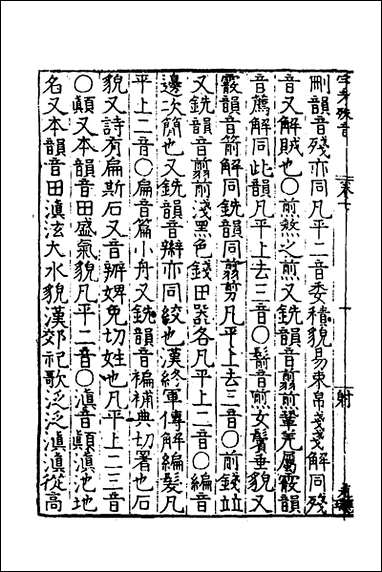 刪韻音殘亦同凡平二音委積貌易束帛戔戔解同殘
音又解賊也○煎熬之煎又銑韻音翦前輩凡屬霰韻
音薦解同此韻凡平上去三音○鬋音煎女鬢垂貌又
霰韻音箭解同銑韻同翦剪凡平上去三音○前錢並
又銑韻音翦前淺黑色錢田器各凡平上二音○編音
邊次簡也又銑韻音辮亦同絞也漢終軍傳解編髮凡
平上二音○扁音篇小舟又銑韻音褊補典切署也石
貌又詩有扁斯石又音辨婢免切姓也凡平上二三音
○顛又本韻音田盛氣貌凡平二音○滇音顛滇池地
名又本韻音田滇泫大水貌漢郊祀歌泛泛滇滇從高
卷下
十
射